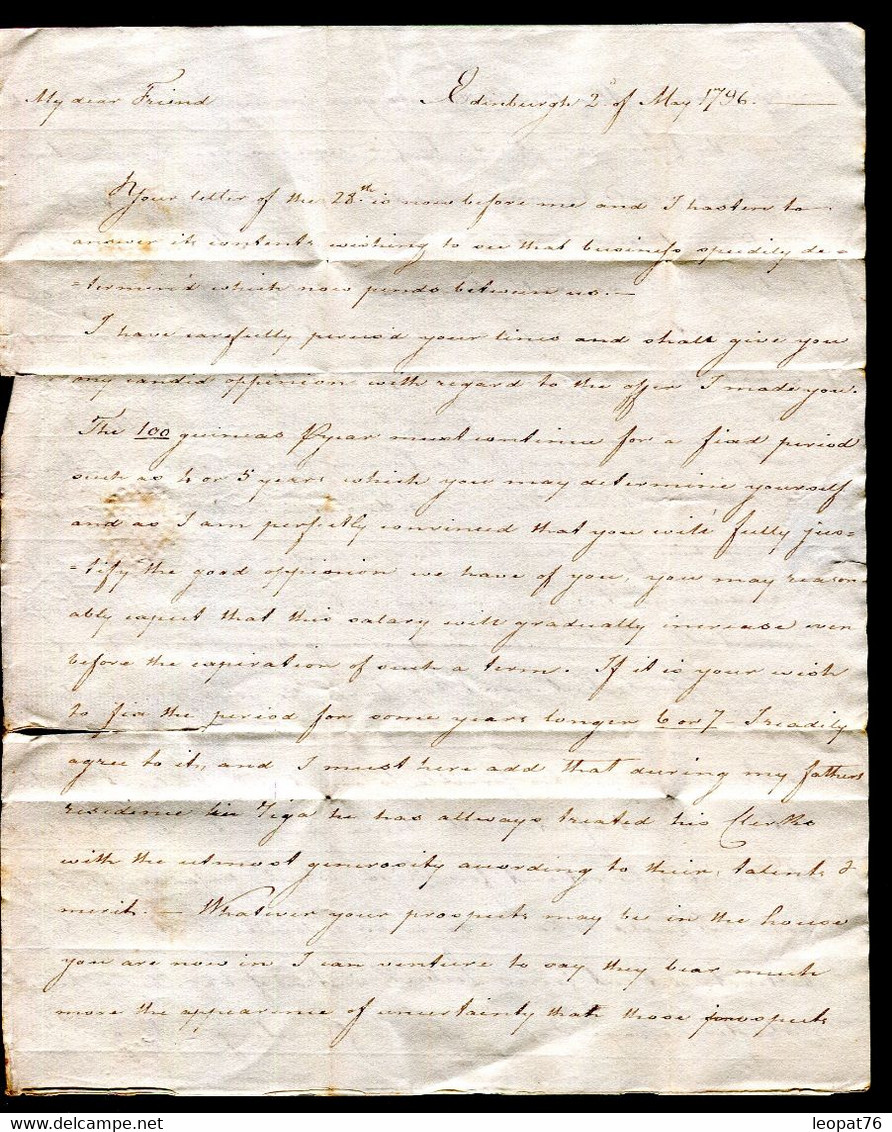 My dear Friend Edinburgh 2d of May 1796. —
Your letter of the 28th is now before me and I hasten to
answer its contents wishing to see that business speedily de=
=termin'd which now pends between us. —
I have carefully perus'd your lines and shall give you
my candid oppinion with regard to the offer I made you.
The 100 guineas P year must continue for a fixd period
such as 4 or 5 years which you may determine yourself
and as I am perfectly convinced that you will fully jus=
=tify the good oppinion we have of you, you may reason
ably expect that this salary will gradually increase even
before the expiration of such a term. If it is your wish
to fix the period for some years longer 6 or 7 – I readily
agree to it, and I must here add that during my fathers
residence in Riga he has allways treated his Clerks
with the utmost generosity according to their talents &
merit. — Whatever your prospects may be in the house
you are now in I can venture to say they bear much
more the appearence of uncertainty than those prospects
leopat76